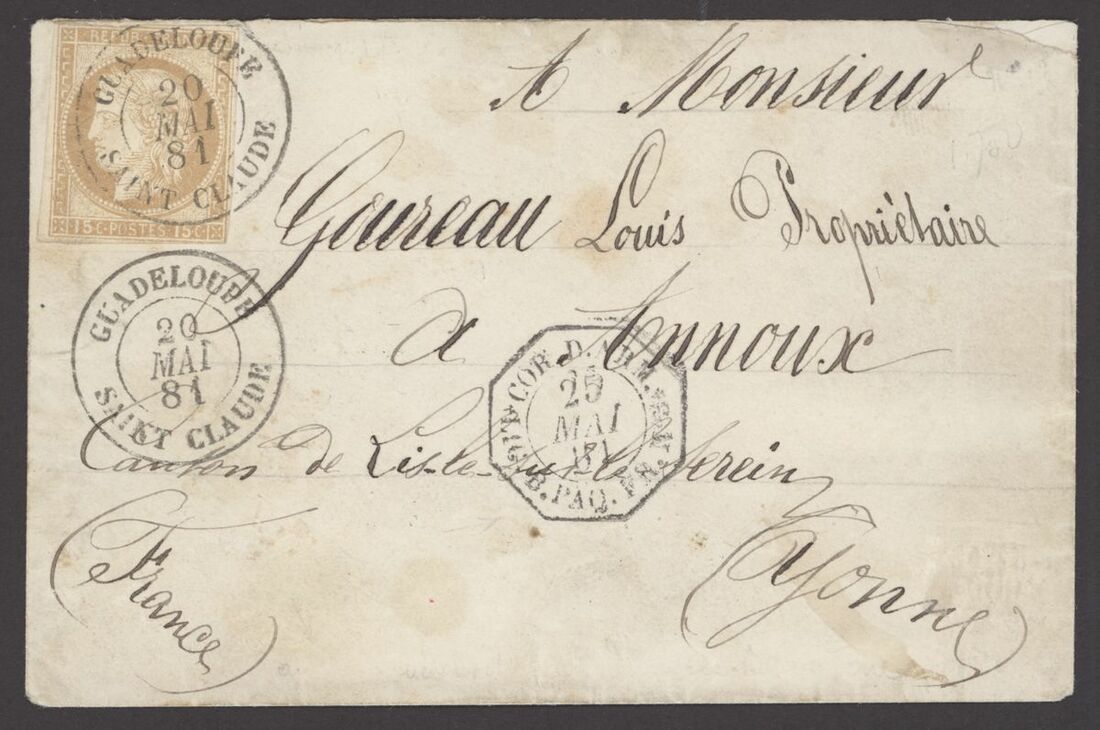 REPUB
15c. POSTES 15c.
GUADELOUPE
20
MAI
81
SAINT CLAUDE
A Monsieur
Goureau Louis Propriétaire
a Annoux
Canton de Lisle-sur-le-Serein
(Yonne)
(France)
GUADELOUPE
20
MAI
81
SAINT CLAUDE
COR. D. ARM.
25
MAI
81
LIG. B. PAQ. FR.